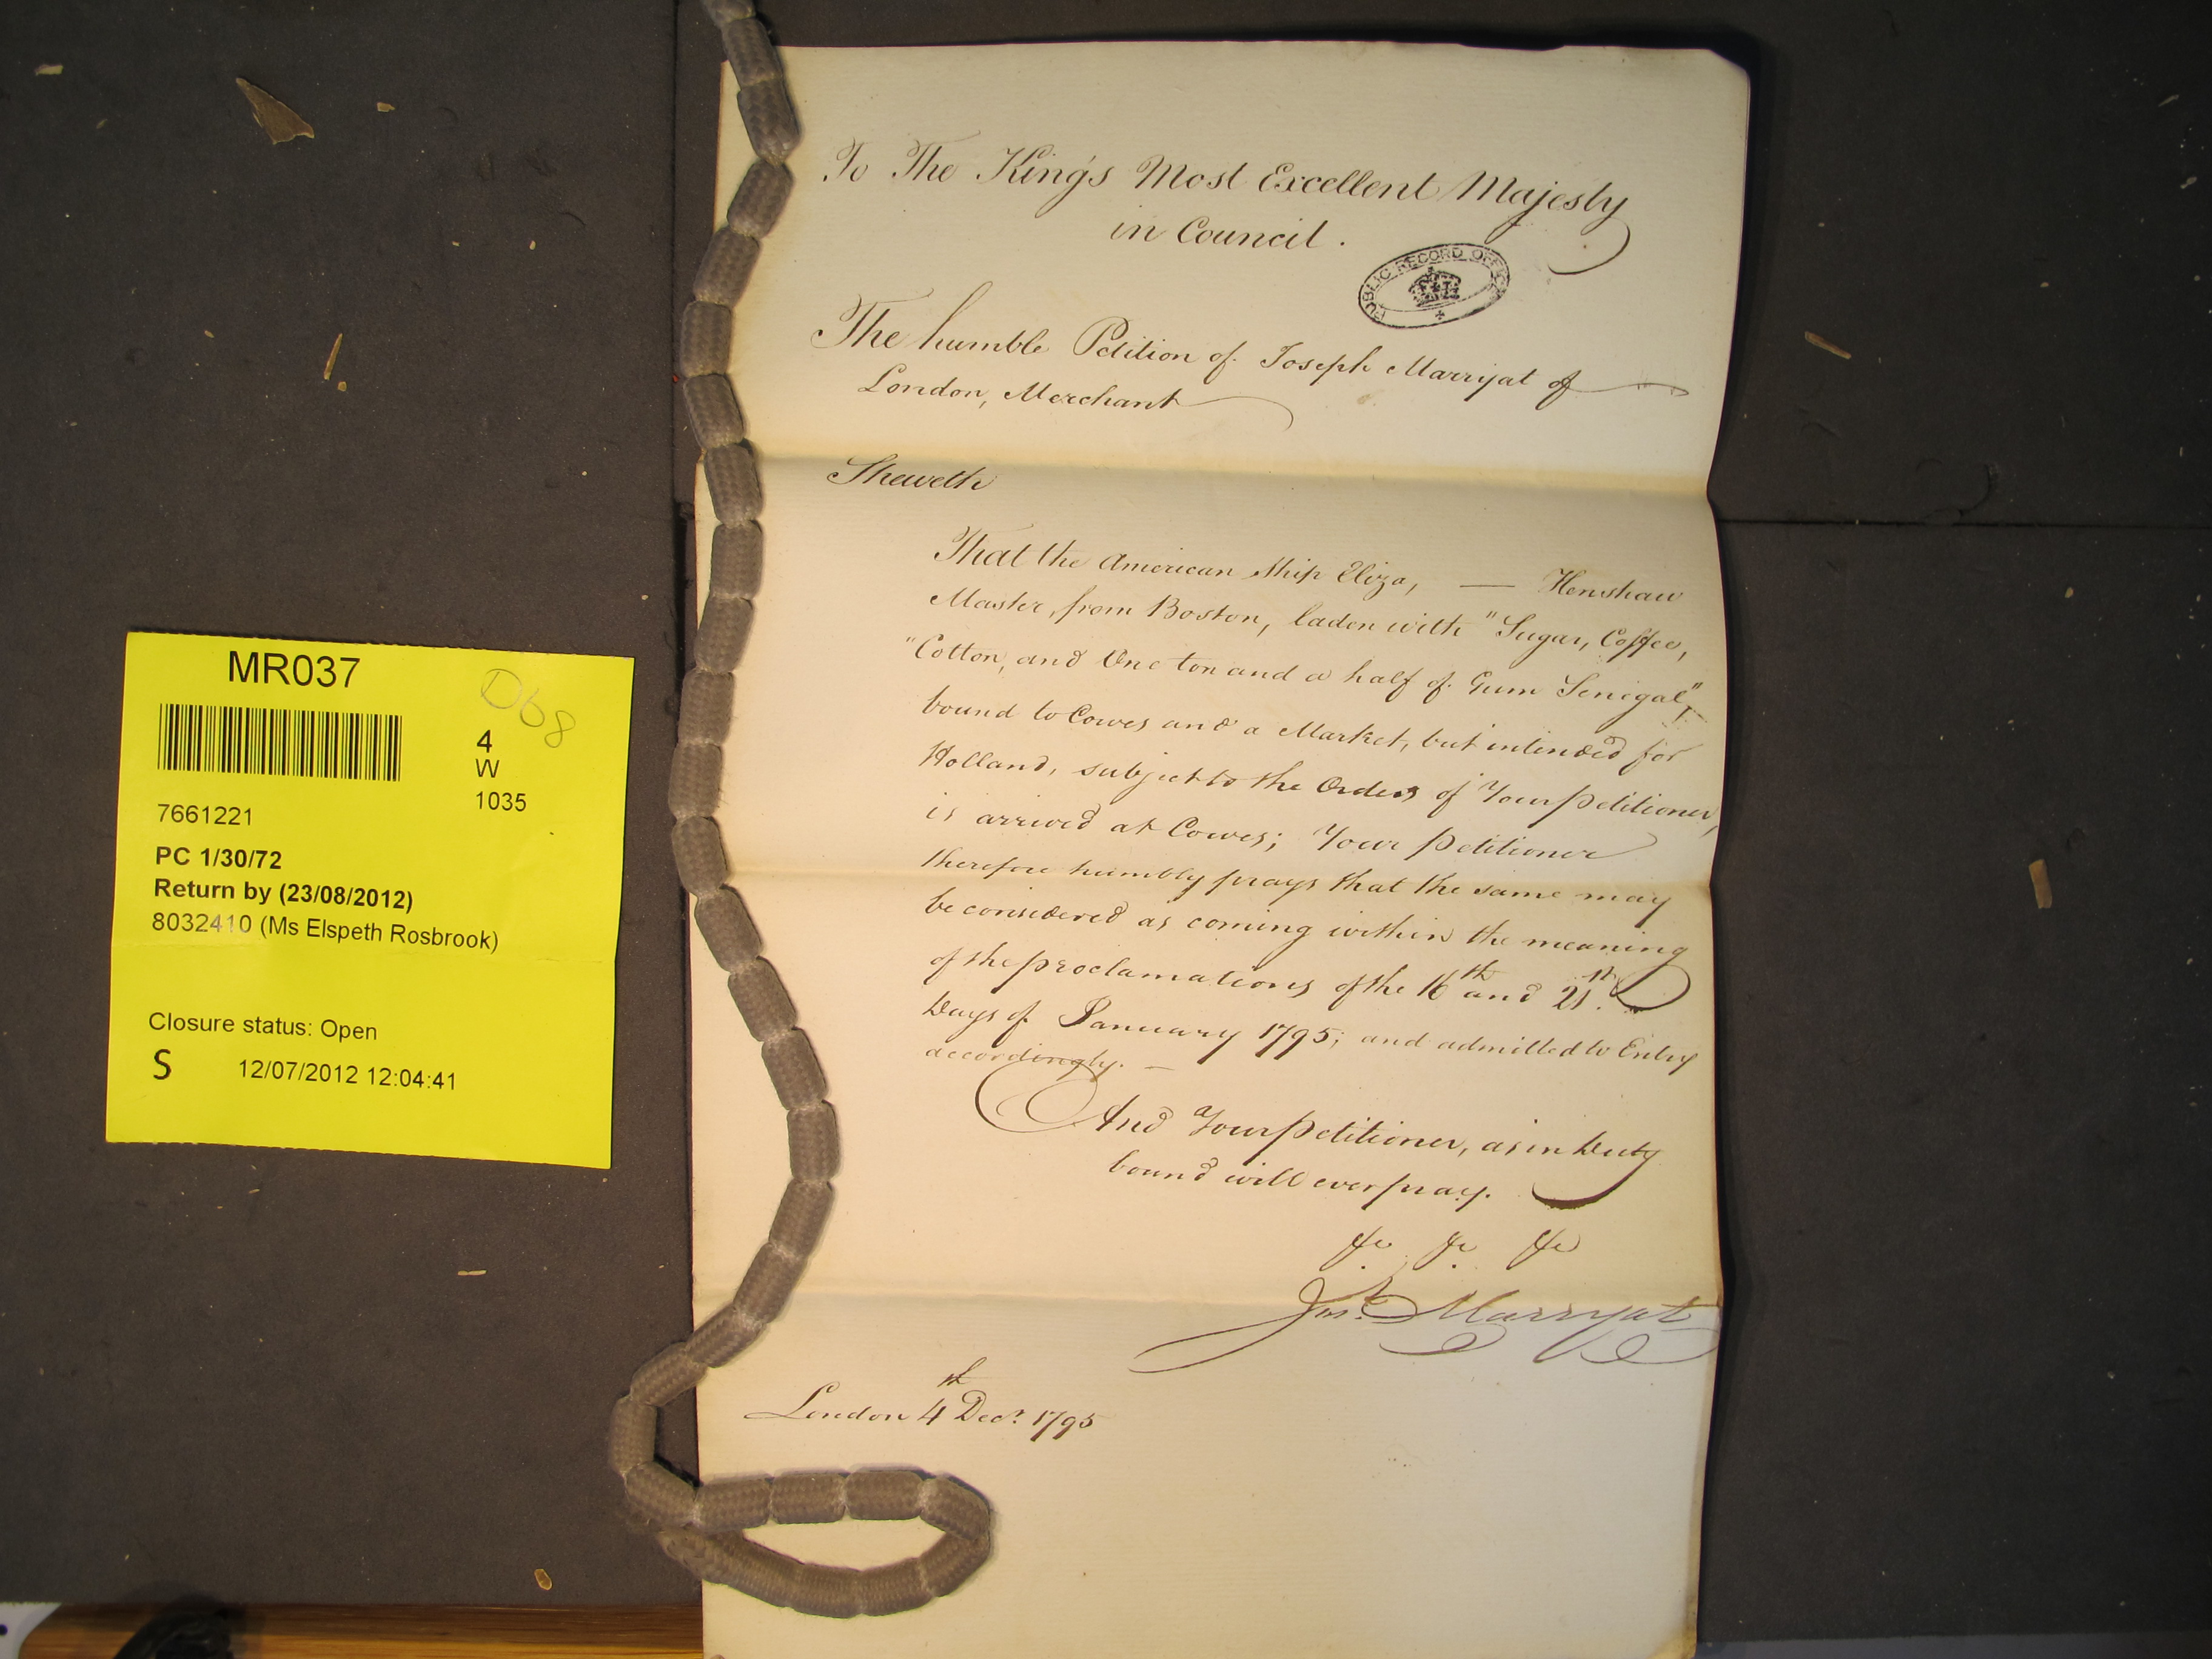 To The King's Most Excellent Majesty
in Council.
PUBLIC RECORD OFFICE
The humble Petition of Joseph Marryat of
London, Merchant
Sheweth
That the American Ship Eliza, — Henshaw
Master, from Boston, laden with "Sugar, Coffee,
"Cotton, and One ton and a half of Gum Senegal",
bound to Cowes and a Market, but intended for
Holland, subject to the Orders of Your Petitioner,
is arrived at Cowes; Your Petitioner
therefore humbly prays that the same may
be considered as coming within the meaning
of the proclamations of the 16th and 21st.
Days of January 1795; and admitted to Entry
accordingly. —
And Your Petitioner, as in Duty
bound will ever pray.
&c. &c. &c
Jos. Marryat
London 4th Decr. 1795
MR037
D68
4
W
1035
7661221
PC 1/30/72
Return by (23/08/2012)
8032410 (Ms Elspeth Rosbrook)
Closure status: Open
S 12/07/2012 12:04:41